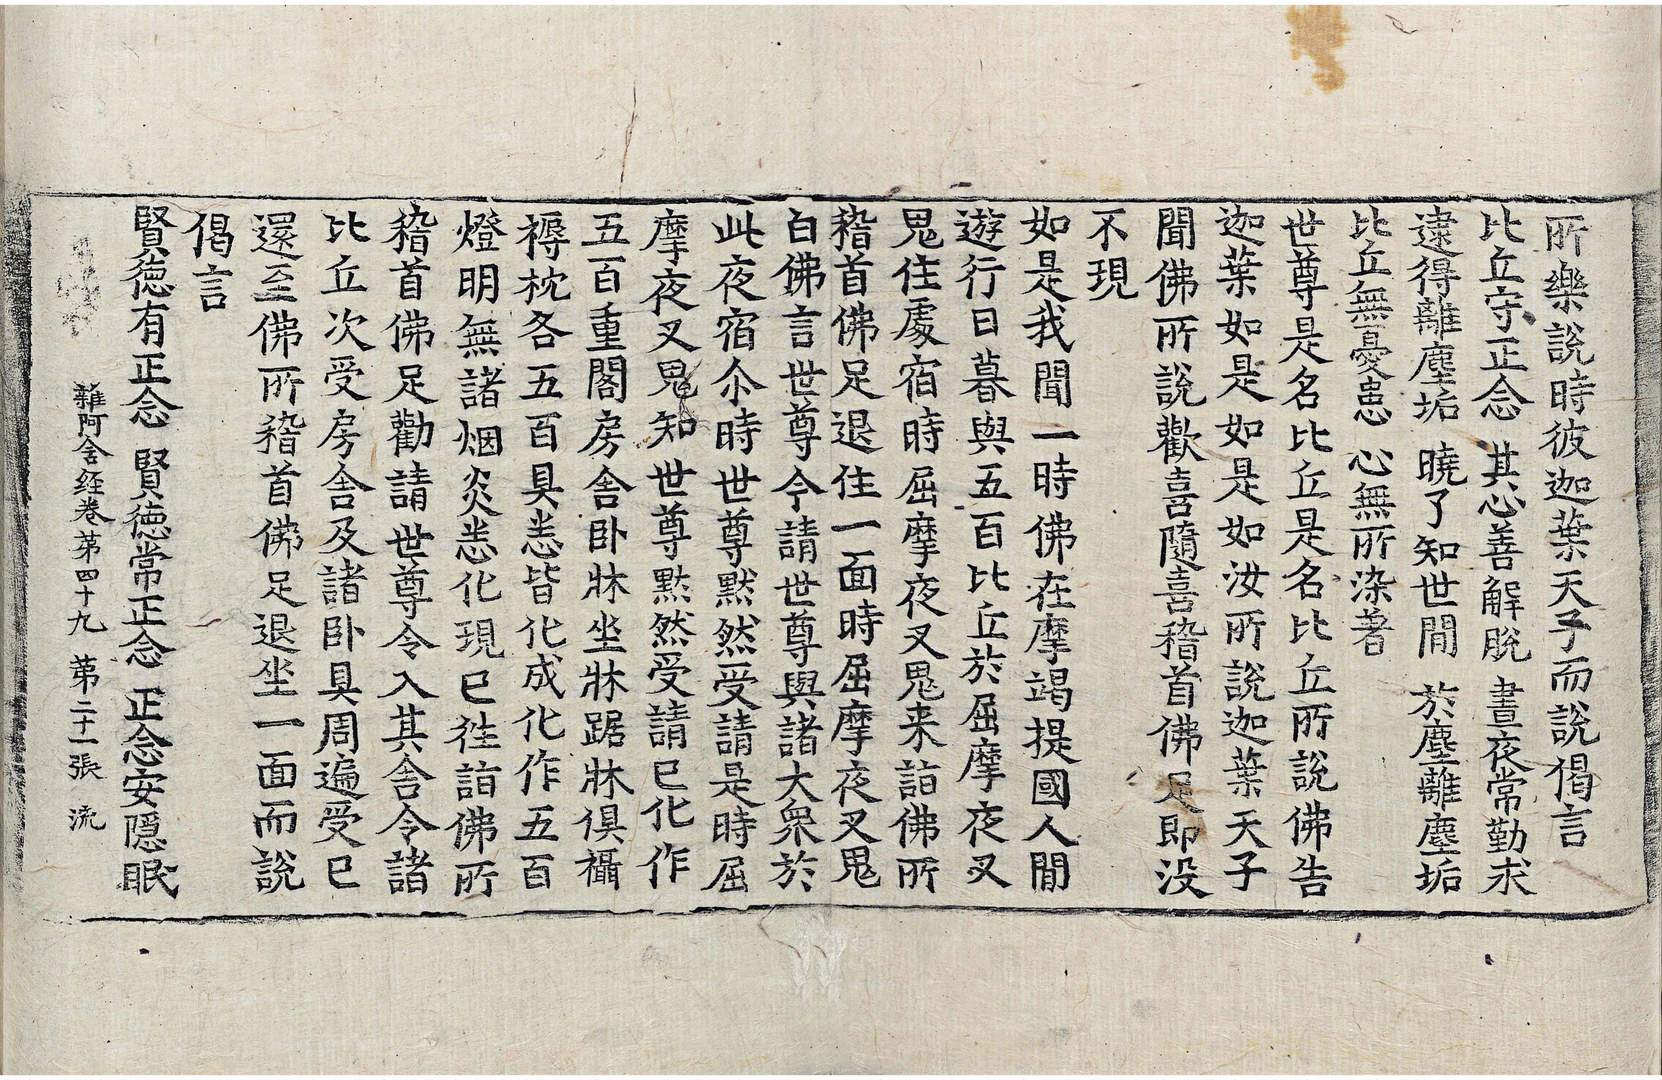 所樂說時彼迦葉天子而說偈言
比丘守正念 其心善解脫 晝夜常勤求
逮得離塵垢 曉了知世間 於塵離塵垢
比丘無憂患 心無所染著
世尊是名比丘是名比丘所說佛告
迦葉如是如是如汝所說迦葉天子
聞佛所說歡喜隨喜稽首佛足即没
不現
如是我聞一時佛在摩竭提國人間
遊行日暮與五百比丘於屈摩夜叉
鬼住處宿時屈摩夜叉鬼来詣佛所
稽首佛足退住一面時屈摩夜叉鬼
白佛言世尊今請世尊與諸大衆於
此夜宿尒時世尊默然受請是時屈
摩夜叉鬼知世尊默然受請已化作
五百重閣房舍卧牀坐牀踞牀俱攝
褥枕各五百具悉皆化成化作五百
燈明無諸烟炎悉化現已往詣佛所
稽首佛足勸請世尊令入其舍令諸
比丘次受房舍及諸卧具周遍受已
還至佛所稽首佛足退坐一面而說
偈言
賢德有正念 賢德常正念 正念安隱眠
雜阿含経卷第四十九 第二十一張 流